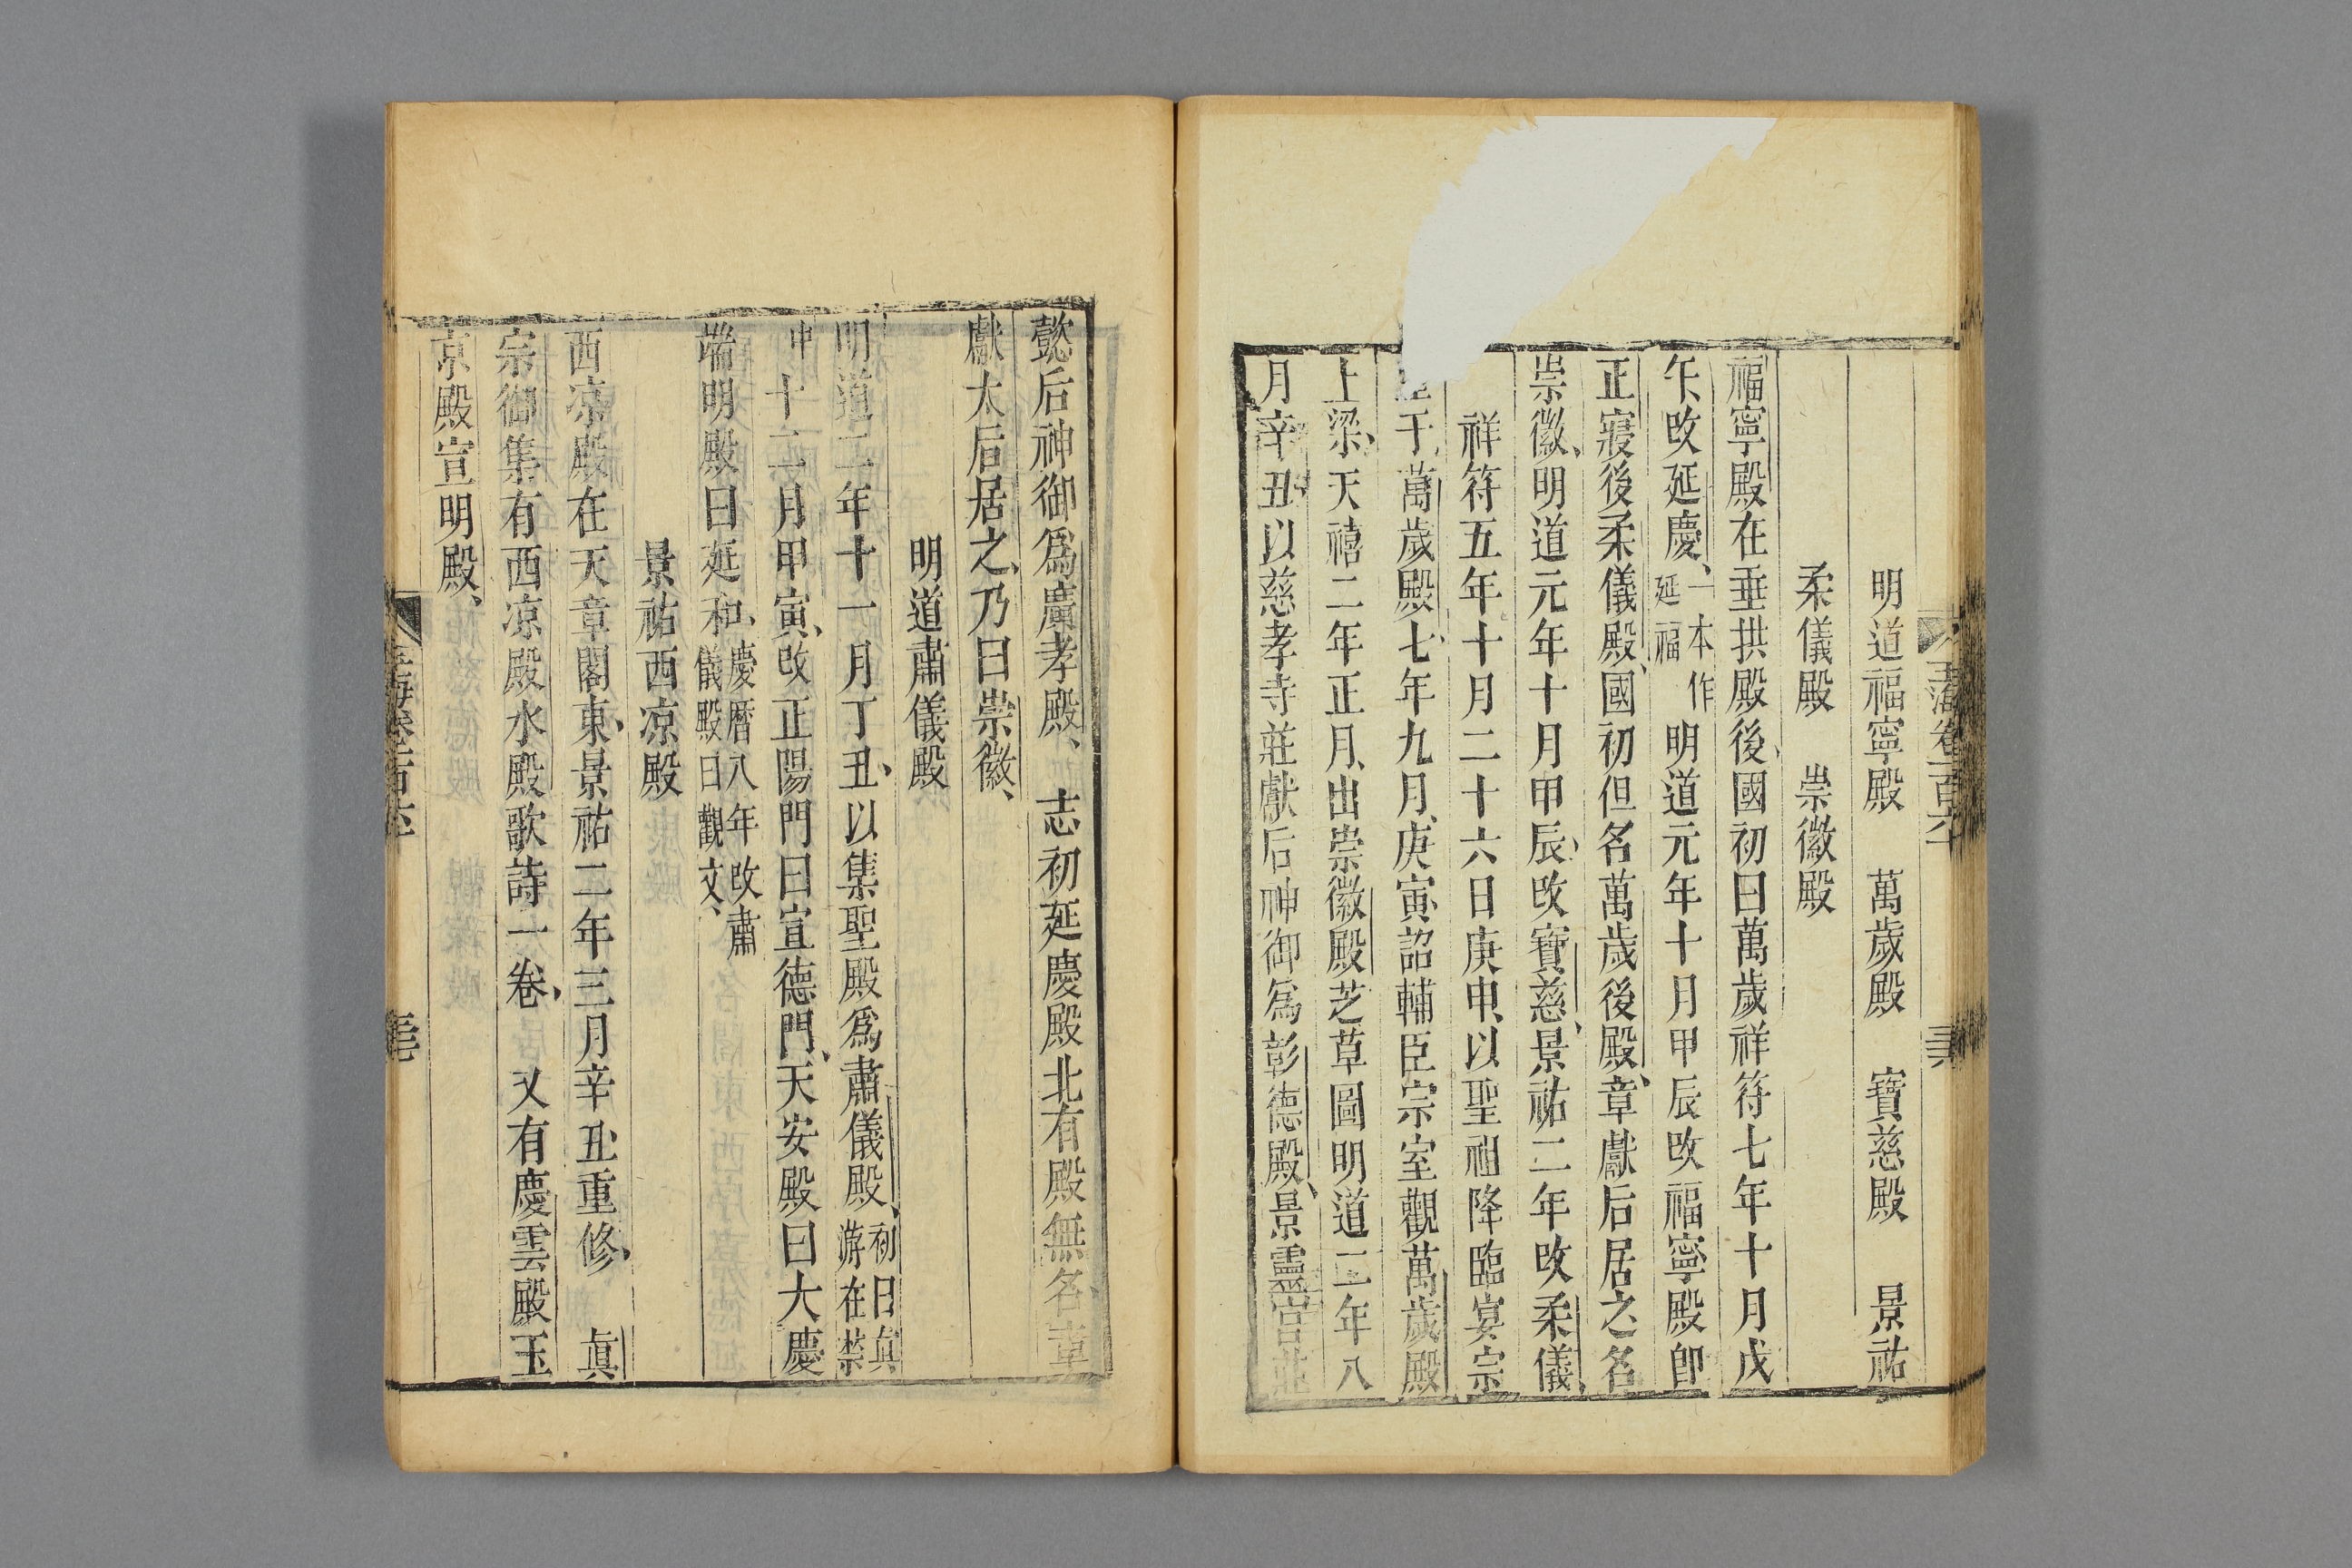 明道福寧殿　萬歲殿　寶慈殿　景祐
柔儀殿　崇徽殿
福寧殿在垂拱殿後國初曰萬歲祥符七年十月戊
午改延慶一本作延福明道元年十月甲辰改福寧殿卽
正寢後柔儀殿國初但名萬歲後殿章獻后居之名
崇徽明道元年十月甲辰改寶慈景祐二年改柔儀
祥符五年十月二十六日庚申以聖祖降臨宴宗
于萬歲殿七年九月庚寅詔輔臣宗室觀萬歲殿
上梁天禧二年正月出崇徽殿芝草圖明道二年八
月辛丑以慈孝寺莊獻后神御爲彰德殿景靈宮莊
懿后神御爲廣孝殿　志初延慶殿北有殿無名章
獻太后居之乃曰崇徽
明道肅儀殿
明道二年十一月丁丑以集聖殿爲肅儀殿初曰眞游在禁
中　十二月甲寅改正陽門曰宣德門天安殿曰大慶
端明殿曰延和慶曆八年改肅儀殿曰觀文
景祐西凉殿
西凉殿在天章閣東景祐二年三月辛丑重修　眞
宗御集有西凉殿水殿歌詩一卷　又有慶雲殿玉
京殿宣明殿